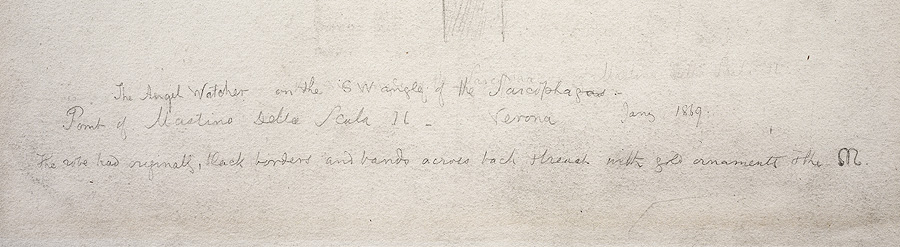 The Angel Watcher on the SW angle of the Sarcophagus -
of Mastino Della Scala II - Verona Jany 1869.
The robe had originally, black borders and bands across back & breast with gold ornaments & the M.